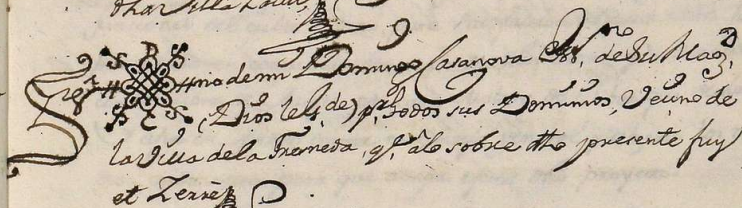 Sig#no de mi Domingo Casanova Ess.no de Su Mag.d
(Dios le g.de) p.r todos sus Dominios, Vecino de
la Villa de la Fresneda, q.e a lo sobre dho presente fuy
et Zerré